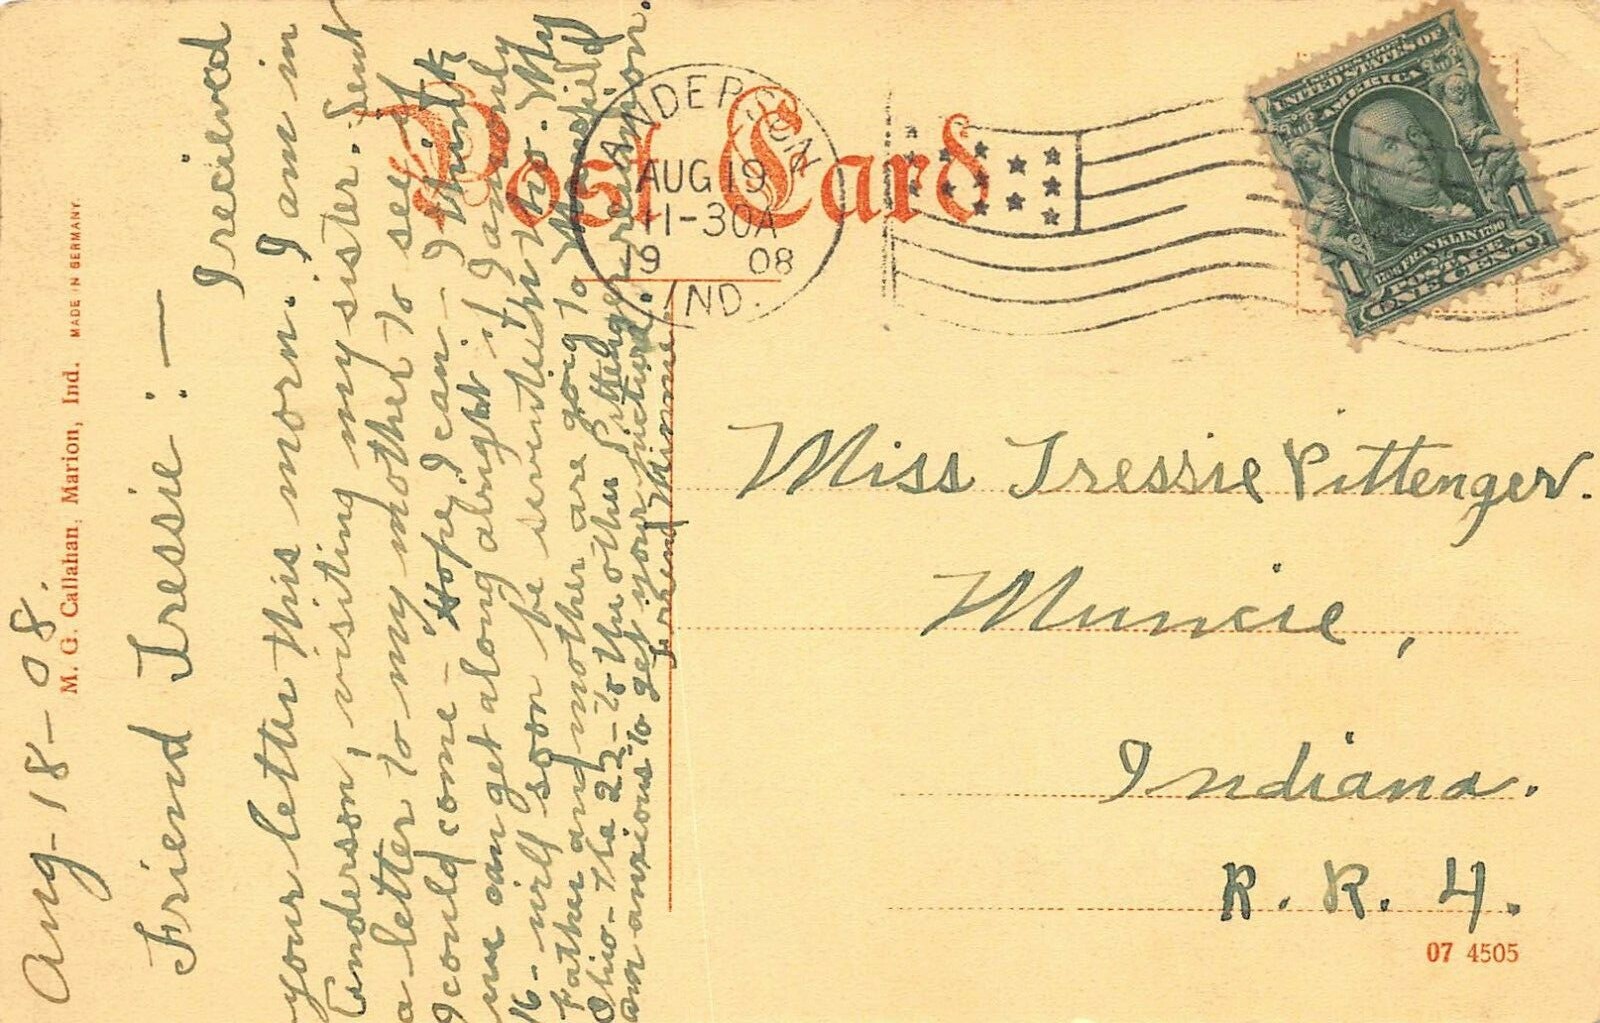 Aug-18-08.
Friend Tressie:—
I recieved
your letter this morn. I am in
Anderson, visiting my sister. Sent
a letter to my mother to see if
I could come - Hope I can - I think
we can get along alright if I am only
16 - will soon be seventeen tho. My
Father and mother are going to Mansfield
Ohio - the 22 - to the other Pittenger reunion.
am anxious to get your picture.
Friend Minnie
M. G. Callahan, Marion, Ind. MADE IN GERMANY.
Post Card
ANDERSON
AUG 19
11-30A
19 08
IND.
UNITED STATES OF
AMERICA
1706 FRANKLIN 1790
1 1
POSTAGE
ONE CENT
Miss Tressie Pittenger.
Muncie,
Indiana.
R. R. 4.
07 4505